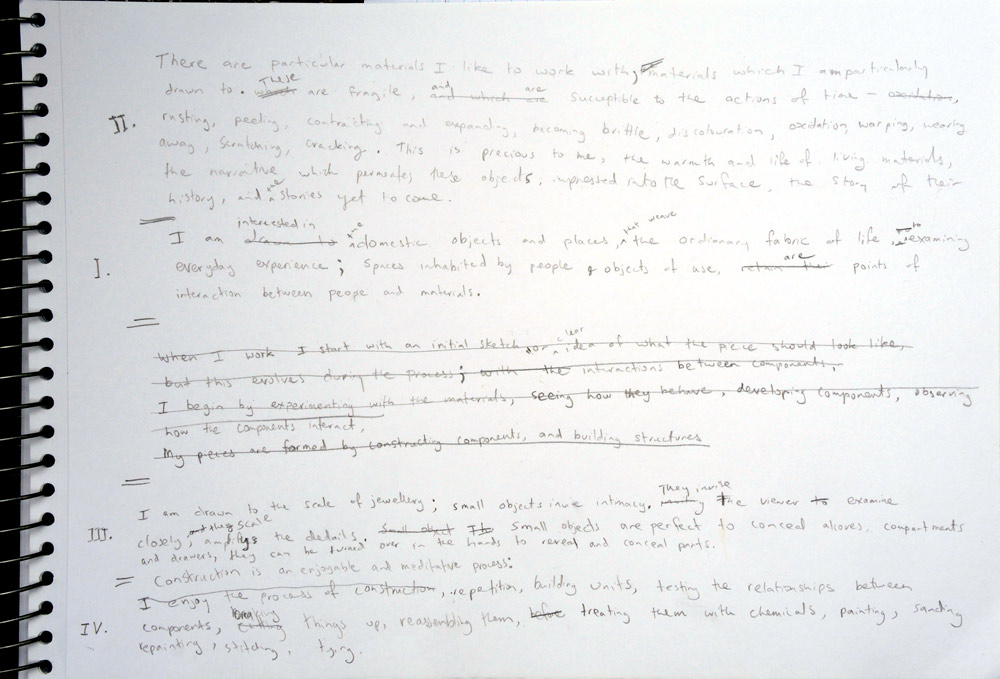 There are particular materials I like to work with, materials which I am particularly
drawn to. These are fragile, and are succeptible to the actions of time – oxidation,
II. rusting, peeling, contracting and expanding, becoming brittle, discolouration, oxidation, warping, wearing
away, scratching, cracking. This is precious to me, the warmth and life of living materials,
the narrative which permeates these objects, impressed into the surface, the story of their
history, and the stories yet to come.
I am interested in the domestic objects and places, that weave the ordionary fabric of life, to examining
I. everyday experience; spaces inhabited by people & objects of use, are points of
interaction between peope and materials.
When I work I start with an initial sketch or clear idea of what the piece should look like,
but this evolves during the process; with the interactions between components,
I begin by experimenting with the materials, seeing how they behave, developing components, observing
how the components interact,
My pieces are formed by constructing components, and building structures
I am drawn to the scale of jewellery; small objects invite intimacy. They invite the viewer to examine
III. closely, and this scale amplifys the dedails. Small object Its Small objects are perfect to conceal alcoves, compartments
and drawers, they can be turned over in the hands to reveal and conceal parts.
Construction is an enjoyable and meditative process:
I enjoy the process of construction, repetition, building units, testing the relationships between
IV. components, breaking cutting things up, reassembling them, before treating them with chemicals, painting, sanding
repainting, stitching, tying.